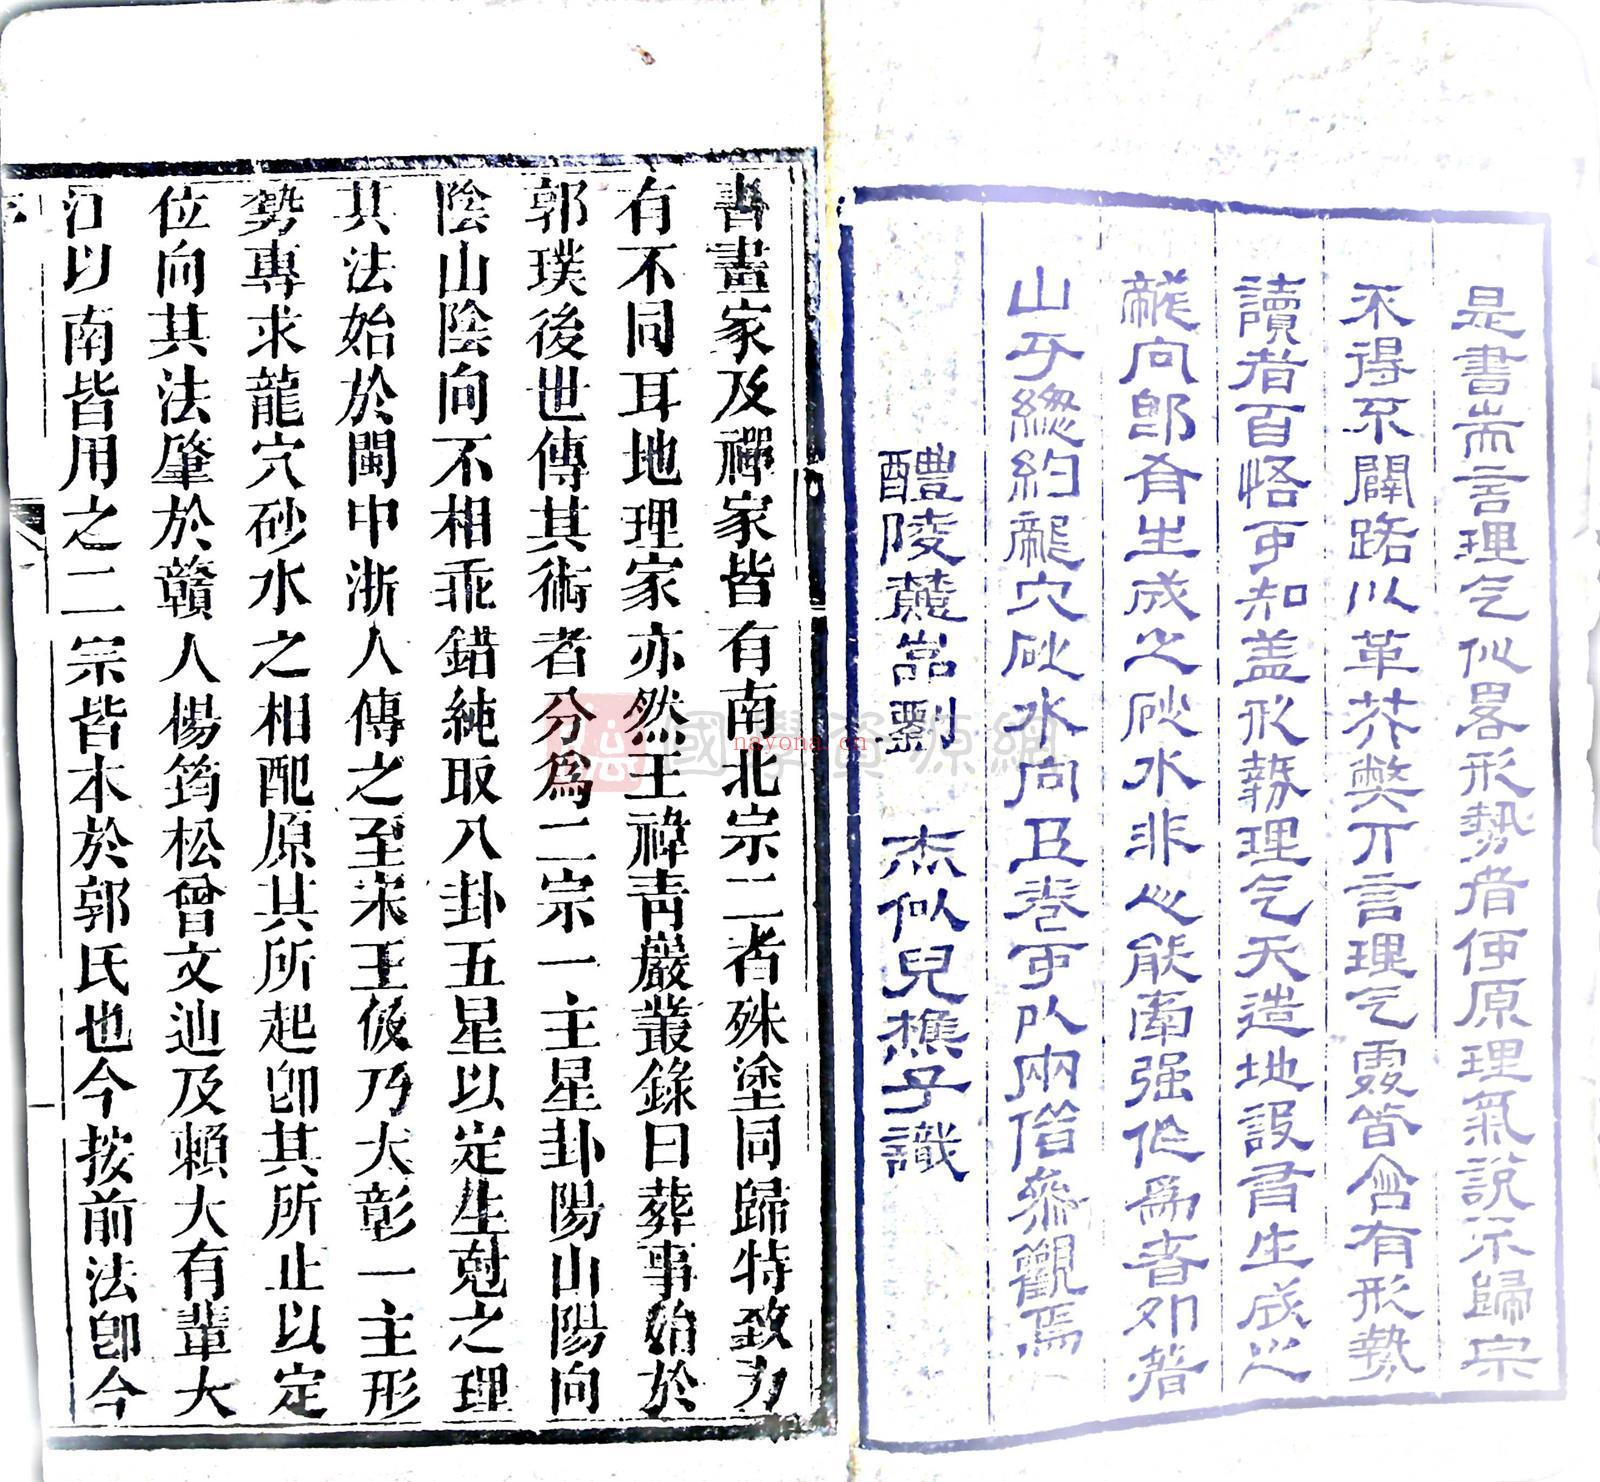 是書耑言理气似畧形勢者但原理氣說不歸宗
不得不闢路以革茅獘丌言理气處皆含有形勢
讀者自悟可知盖形勢理气天造地設有生成之
龍向卽有生成之砂水非心能牽强作為者如著
山平總約龍穴砂水向五卷可以兩偕參觀焉
醴陵麓嵩劉 杰似兒樵子識
書畫家及禪家皆有南北宗二者殊塗同歸特致力
有不同耳地理家亦然王禕青巖叢錄曰葬事始於
郭璞後世傳其術者分爲二宗一主星卦陽山陽向
陰山陰向不相乖錯純取八卦五星以定生尅之理
其法始於閩中浙人傳之至宋王伋乃大彰一主形
勢專求龍穴砂水之相配原其所起卽其所止以定
位向其法肇於贛人楊筠松曾文辿及賴大有輩大
江以南皆用之二宗皆本於郭氏也今按前法卽今
國學資源網
nayona.cn